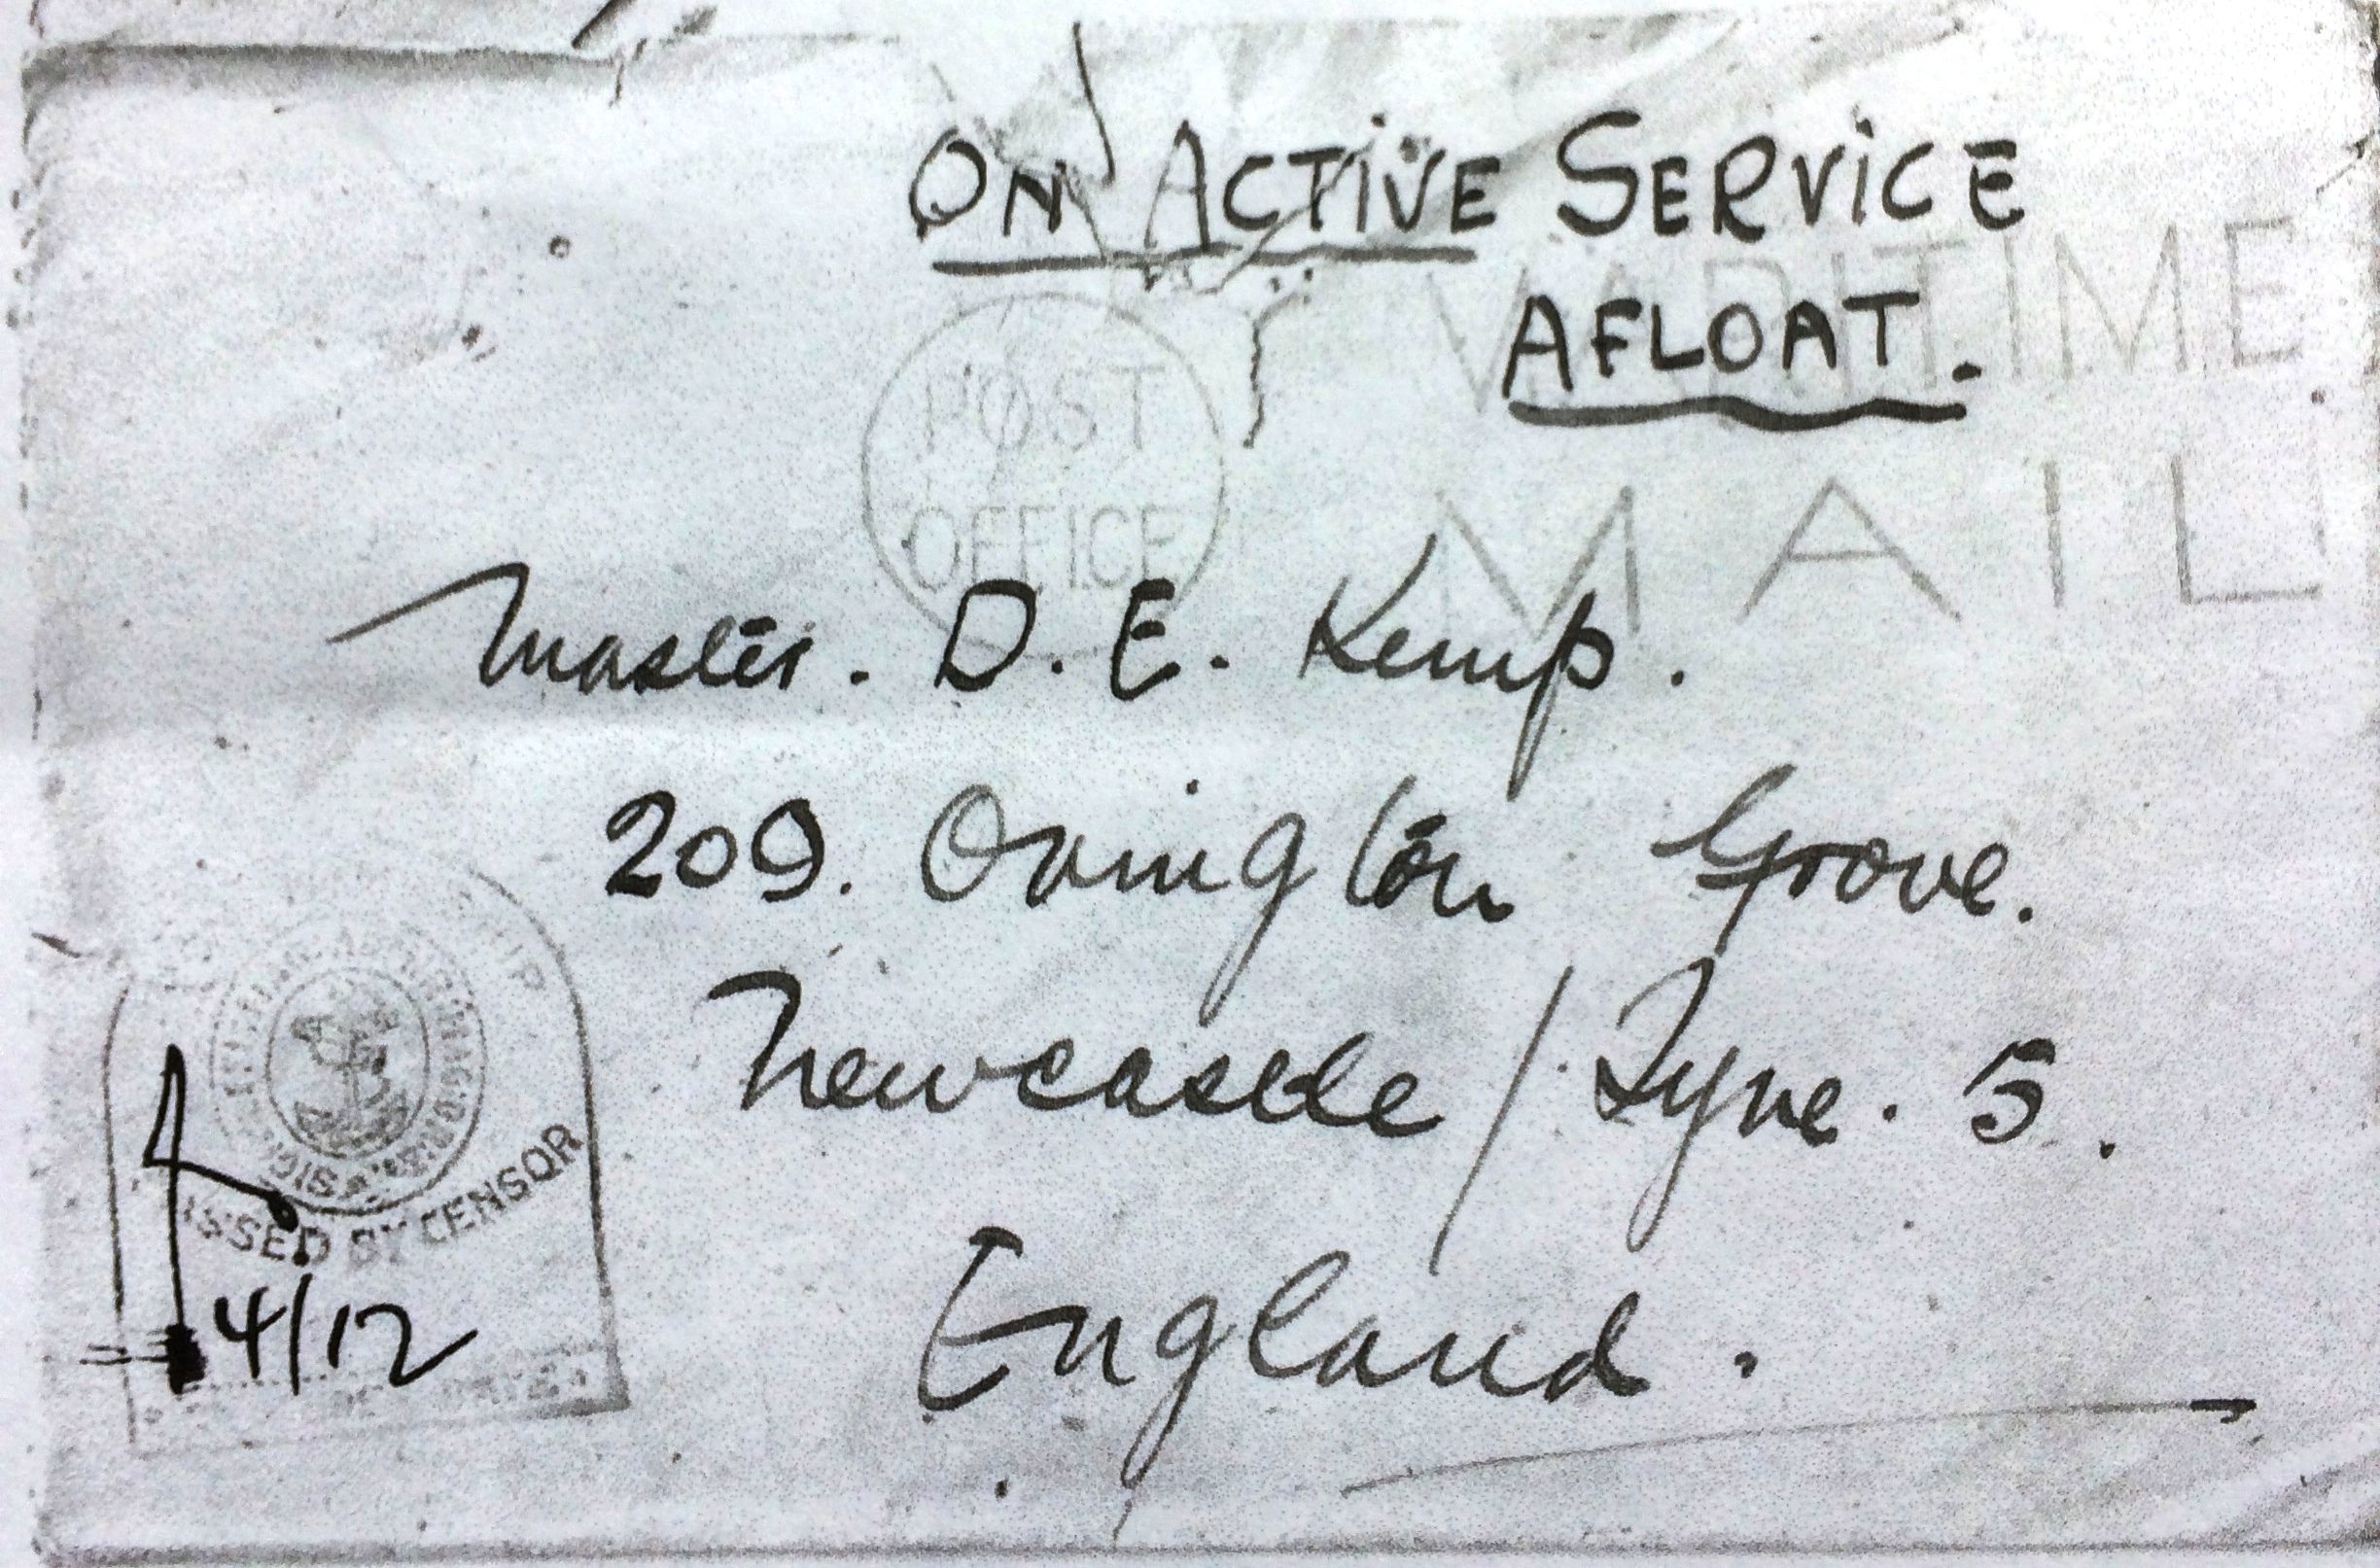 ON ACTIVE SERVICE
AFLOAT.
MARITIME
MAIL
POST
OFFICE
Master. D. E. Kemp.
209. Ovington Grove.
Newcastle / Tyne. 5.
England.
BY CENSOR
4/12